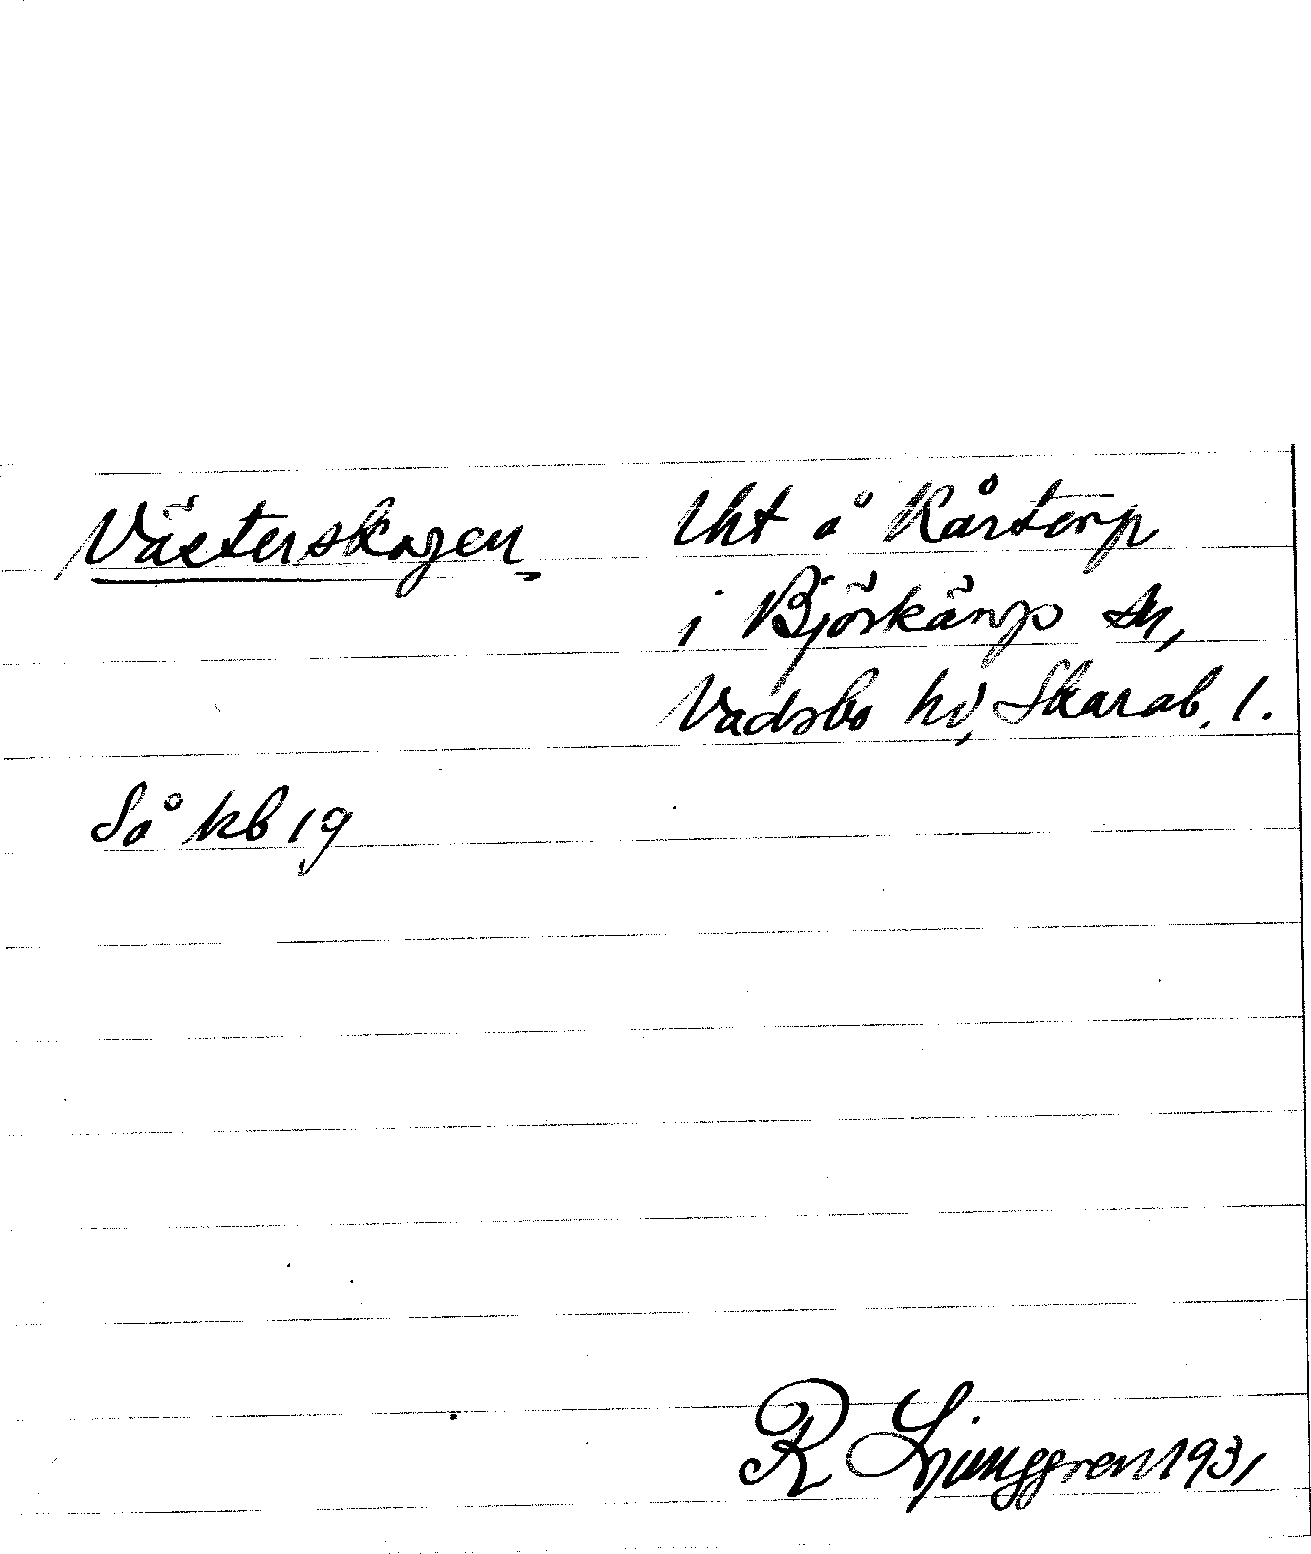 Västerskogen
Uht å Kårtorp
i Björkäng sn,
Vadsbo hd, Skarab. l.
Så kb 19
R Ljunggren 1931